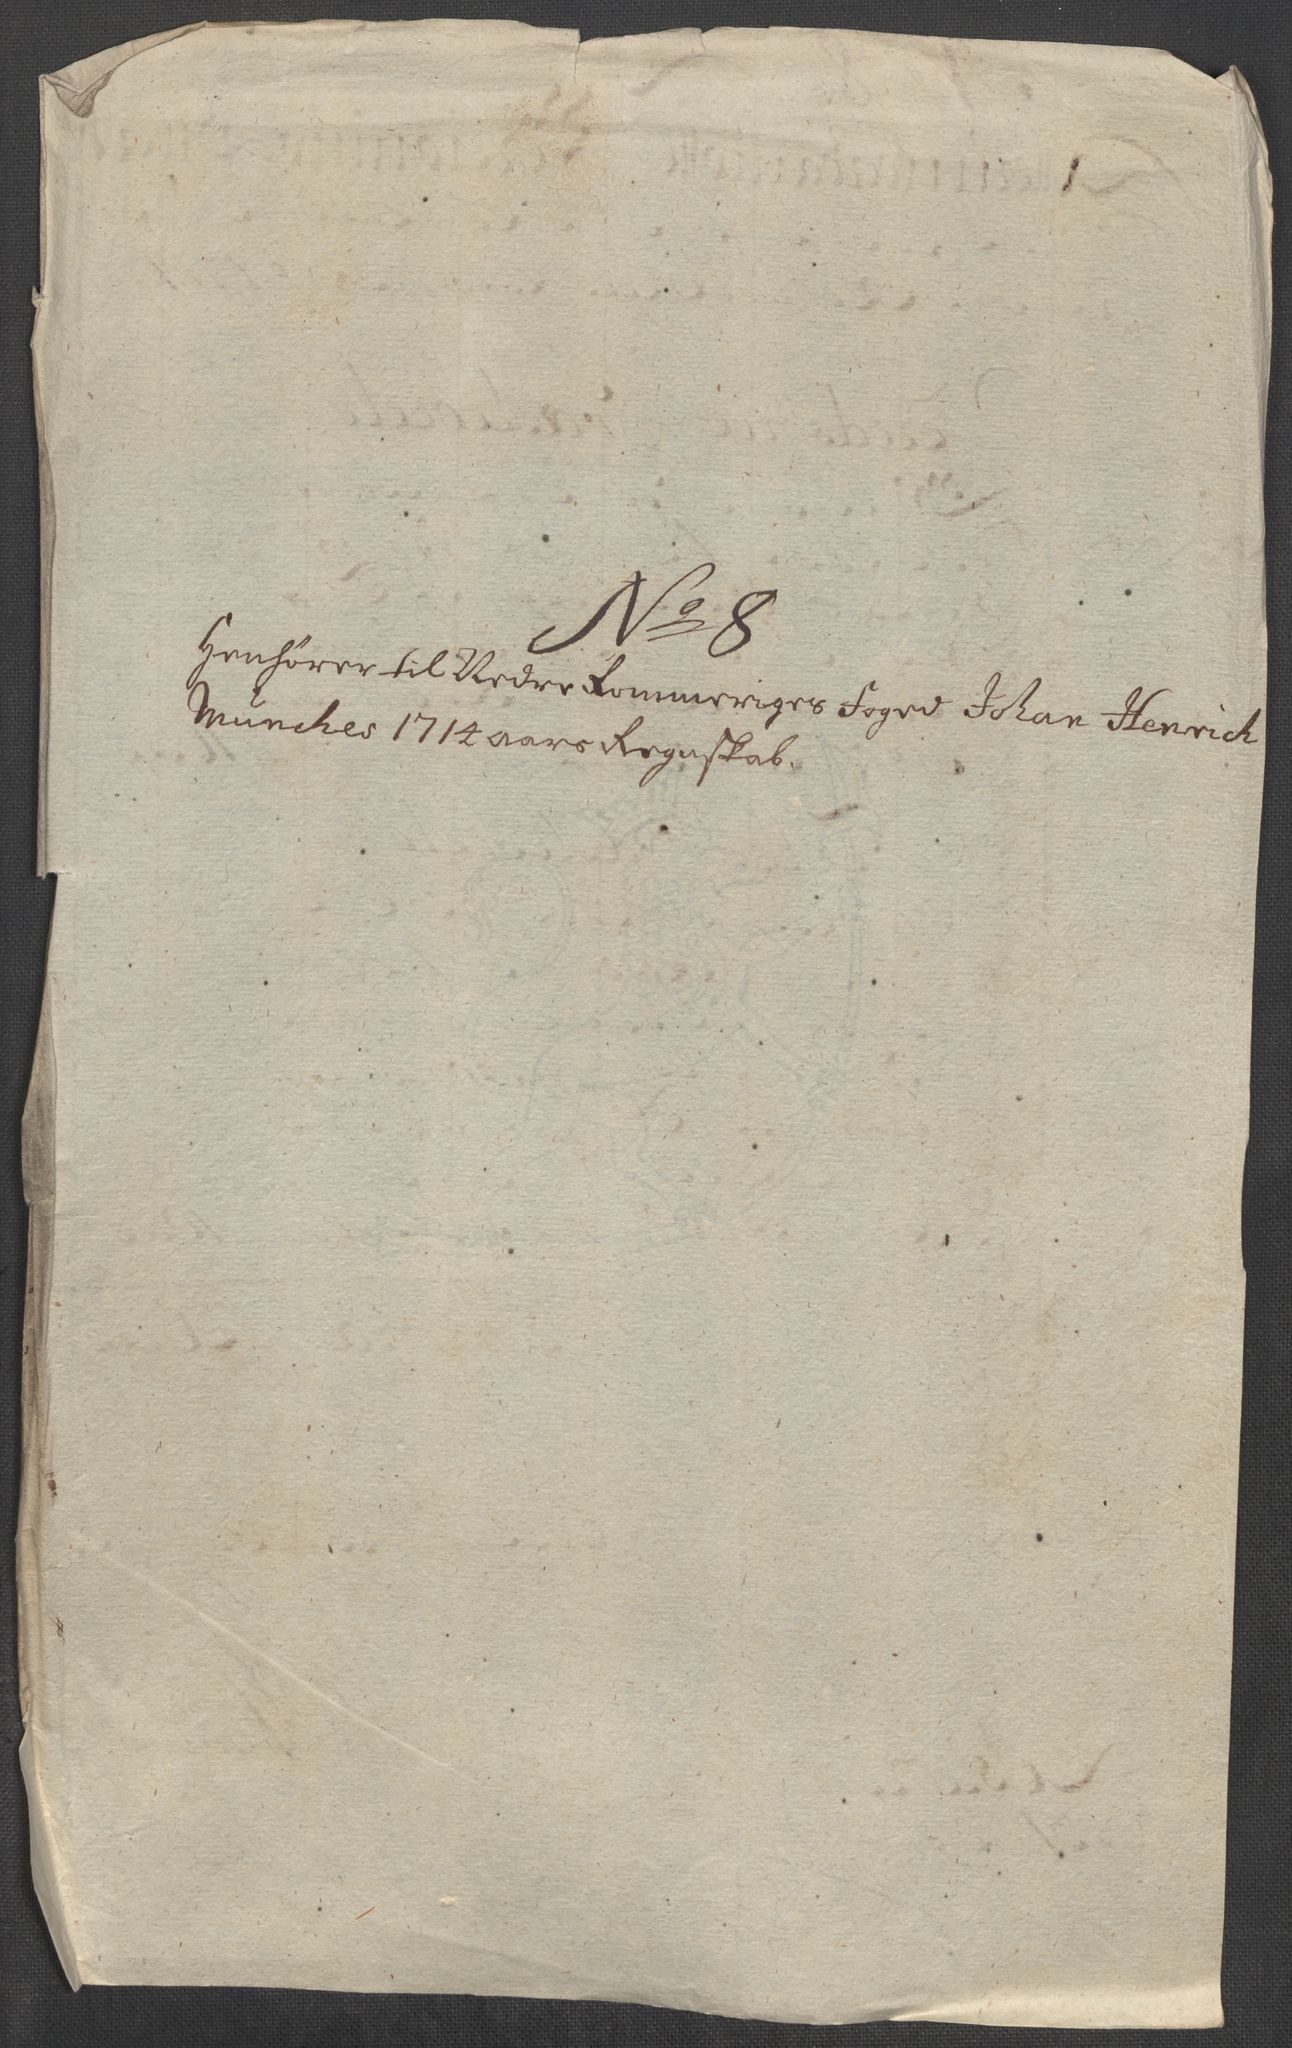 No 8
Henhörer til Nedre Rommeriges Foged Johan Henrich
Münches 1714 aars Regnskab.